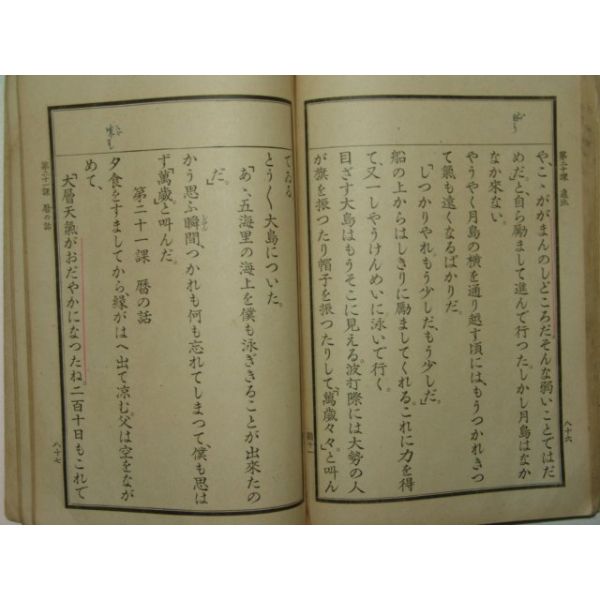 第二十課 遠泳
八十六
や、こゝががまんのしどころだそんな弱いことではだ
めだ。」と、自ら励まして進んで行つた。しかし月島はなか
なか來ない。
やうやく月島の横を通り越す頃には、もうつかれきつ
て氣も遠くなるばかりだ。
「しつかりやれ。もう少しだ、もう少しだ。」
船の上からはしきりに励ましてくれる。これに力を得
て、又一しやうけんめいに泳いで行く。
目ざす大島はもうそこに見える。波打際には大勢の人
が旗を振つたり帽子を振つたりして、「萬歳々々。」と叫ん
でゐる
とうとう大島についた。
「あゝ、五海里の海上を僕も泳ぎきることが出來たの
だ。」
かう思ふ瞬間、つかれも何も忘れてしまつて、僕も思は
ず「萬歳」と叫んだ。
第二十一課 暦の話
夕食をすましてから縁がはへ出て凉む。父は空をなが
めて、
「大層天氣がおだやかになつたね。二百十日もこれで
第二十一課 暦の話
八十七